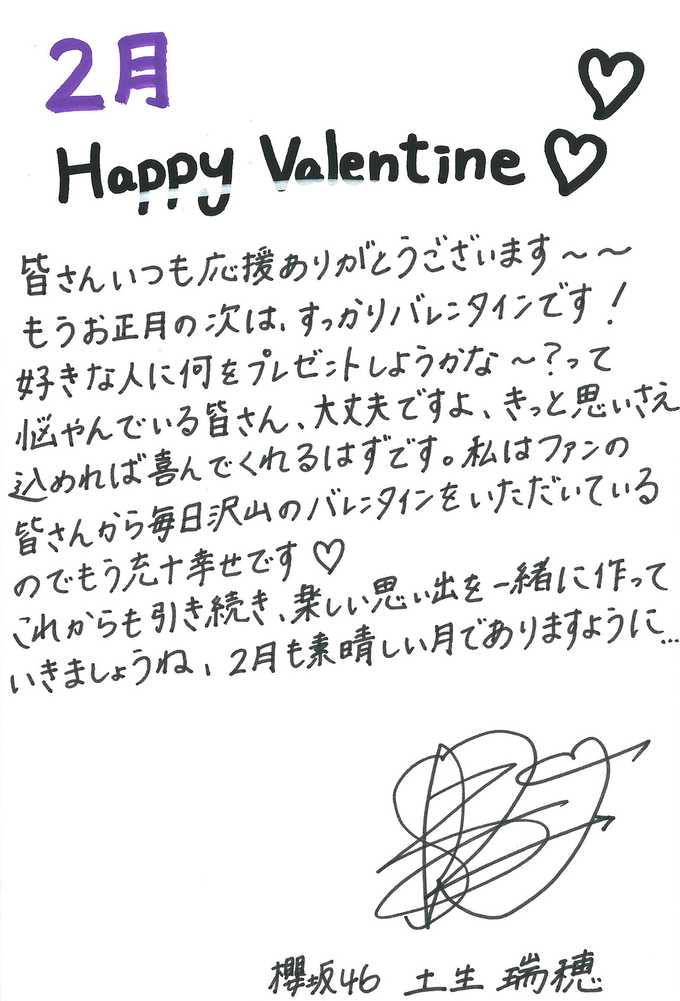 2月 ♡
Happy Valentine ♡
皆さんいつも応援ありがとうございます〜〜
もうお正月の次は、すっかりバレンタインです!
好きな人に何をプレゼントしようかな〜?って
悩やんでいる皆さん、大丈夫ですよ、きっと思いさえ
込めれば喜んでくれるはずです。私はファンの
皆さんから毎日沢山のバレンタインをいただいている
のでもう充十幸せです♡
これからも引き続き、楽しい思い出を一緒に作って
いきましょうね、2月も素晴しい月でありますように...
櫻坂46 土生 瑞穂